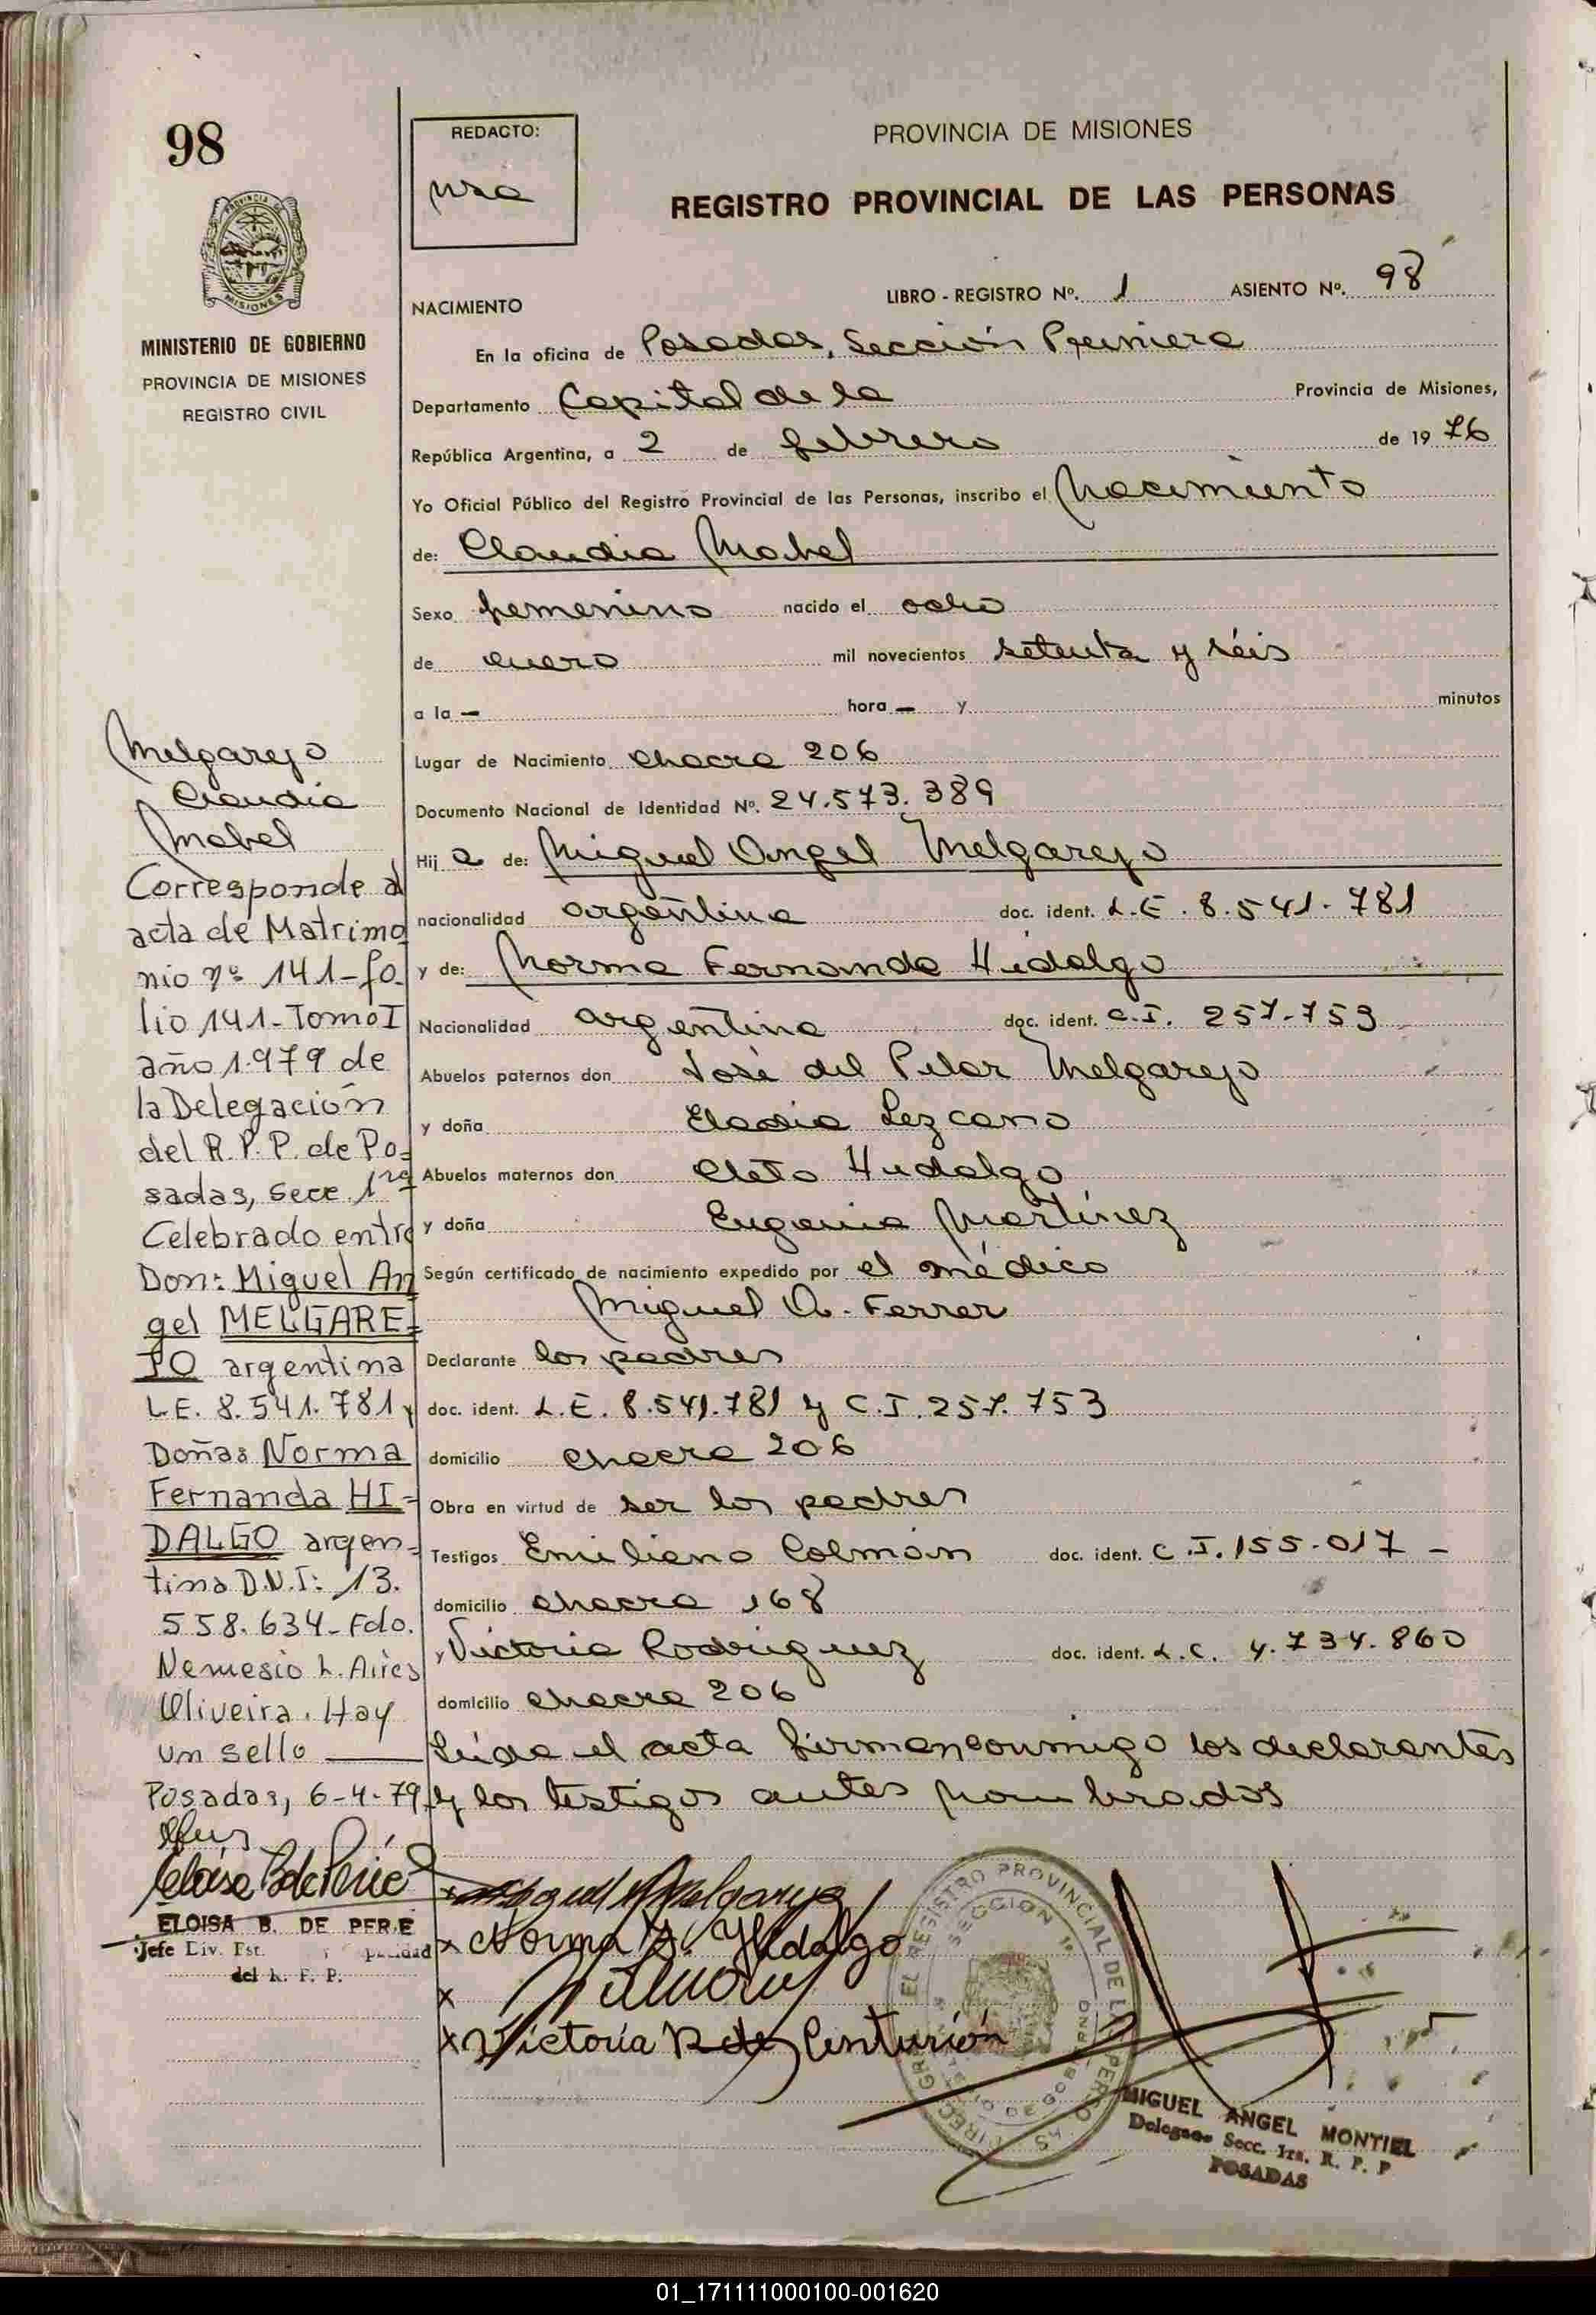 98
MINISTERIO DE GOBIERNO
PROVINCIA DE MISIONES
REGISTRO CIVIL
Melgarejo
Claudia
Mabel
Corresponde al
acta de Matrimo
nio nº 141-fo-
lio 141-Tomo I
año 1.979 de
la Delegación
del R.P.P. de Po=
sadas, Secc. 1ra
Celebrado entre
Don: Miguel An
gel MELGARE=
JO argentina
L.E. 8.541.781 y
Doña: Norma
Fernanda HI=
DALGO argen-
tina D.N.I: 13.
558.634-Fdo.
Nemesio L. Aires
Oliveira. Hay
un sello
Posadas, 6-4-79
ELOISA B. DE
Jefe Div. Est.
del R. P. P.
REDACTO:
PROVINCIA DE MISIONES
REGISTRO PROVINCIAL DE LAS PERSONAS
LIBRO - REGISTRO Nº. 1 ASIENTO Nº. 98
NACIMIENTO
En la oficina de Posadas, Sección Primera
Departamento Capital de la Provincia de Misiones,
República Argentina, a 2 de febrero de 1976
Yo Oficial Público del Registro Provincial de las Personas, inscribo el Nacimiento
de: Claudia Mabel
Sexo femenino nacido el ocho
de enero mil novecientos setenta y séis
a la — hora — y minutos
Lugar de Nacimiento chacra 206
Documento Nacional de Identidad Nº. 24.573.389
Hij a de: Miguel Angel Melgarejo
nacionalidad argentina doc. ident. L.E. 8.541.781
y de: Norma Fernanda Hidalgo
Nacionalidad argentina doc. ident. C.I. 257.753
Abuelos paternos don José del Pilar Melgarejo
y doña Eladia Lezcano
Abuelos maternos don Cleto Hidalgo
y doña Eugenia Martínez
Según certificado de nacimiento expedido por el médico
Miguel A. Ferrer
Declarante los padres
doc. ident. L.E. 8.541.781 y C.I. 257.753
domicilio chacra 206
Obra en virtud de ser los padres
Testigos Emiliano Colmán doc. ident. C.I. 155.017 -
domicilio chacra 168
y Victoria Rodriguez doc. ident. L.C. 4.734.860
domicilio chacra 206
Leída el acta firman conmigo los declarantes
y los testigos antes nombrados
x Melgarejo
x Norma F. Hidalgo
x
x Victoria R de Centurión
MIGUEL ANGEL MONTIEL
Delegado Secc. 1ra. R. P. P
POSADAS
01_171111000100-001620